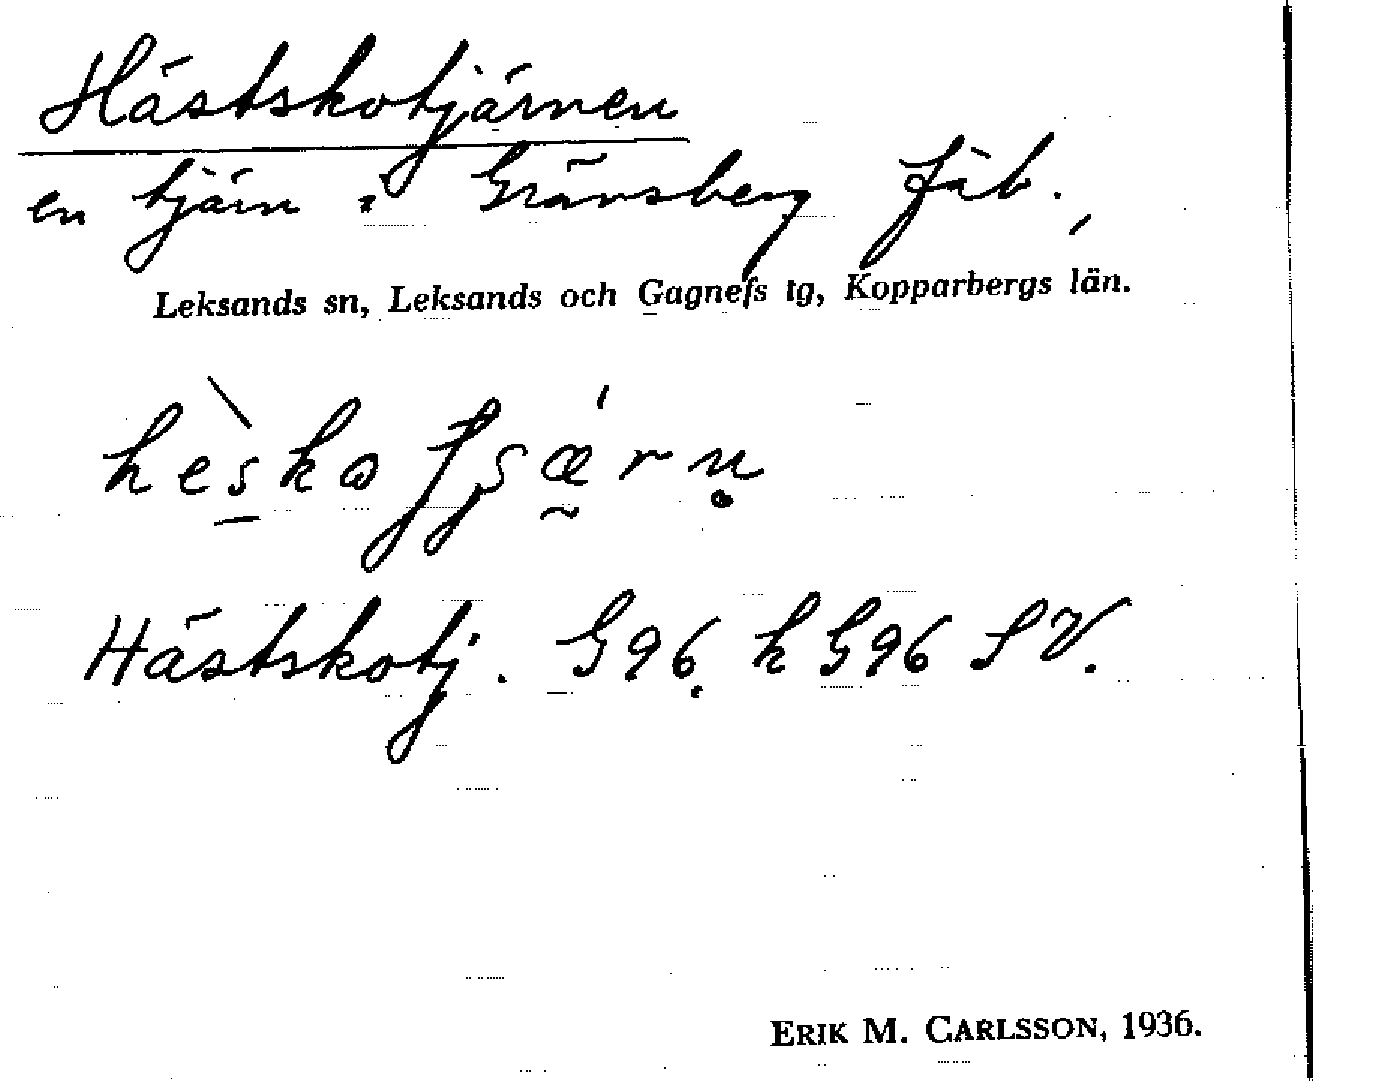 Hästskotjärnen
en tjärn i Gränsberg fäb.,
Leksands sn, Leksands och Gagnefs tg, Kopparbergs län.
Hästskotj. G96. h G96 SV.
ERIK M. CARLSSON, 1936.